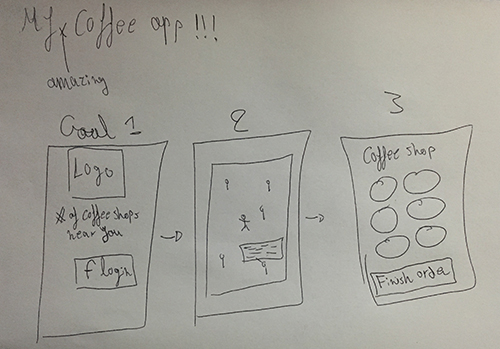 My Coffee app !!!
amazing
Goal 1
2
3
Logo
# of coffee shops
near you
f login
Coffee shop
Finish order